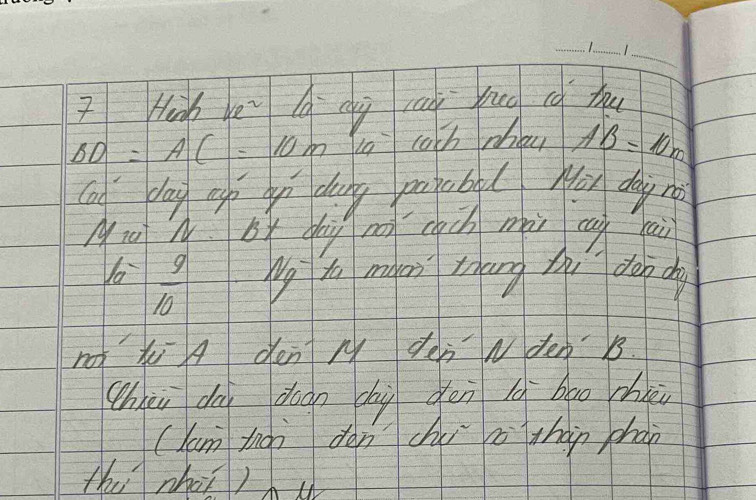 7 Hình vẽ là cây cầu treo có trụ
BD = AC = 10m và cách nhau AB = 10m
Các dây cáp có dạng parabol. Một dây nối
M và N. Bt dây nối cách mặt cây cầu
là 9/10. Ng ta muốn trang trí đèn dây
nối từ A đến M đến N đến B.
Chiều dài đoạn dây đèn là bao nhiêu
(làm tròn đến chữ số thập phân
thứ nhất)